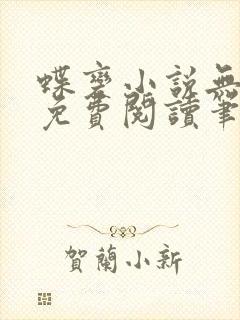 蝶变小説無
免費閱讀筆
賀蘭小新